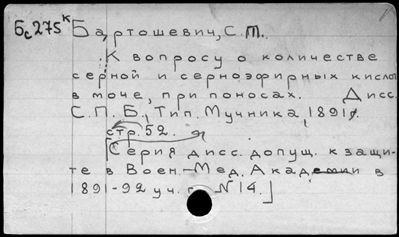 Бс275к Бартошевич, С.М.
К вопросу о количестве
серной и серноэфирных кислот
в моче, при поносах. Дисс.
С.П.Б., Тип. Мучника, 1891.
стр. 52.
[Серия дисс. допущ. к защи-
те в Воен.-Мед. Академии в
1891-92 уч. г. N 14.]